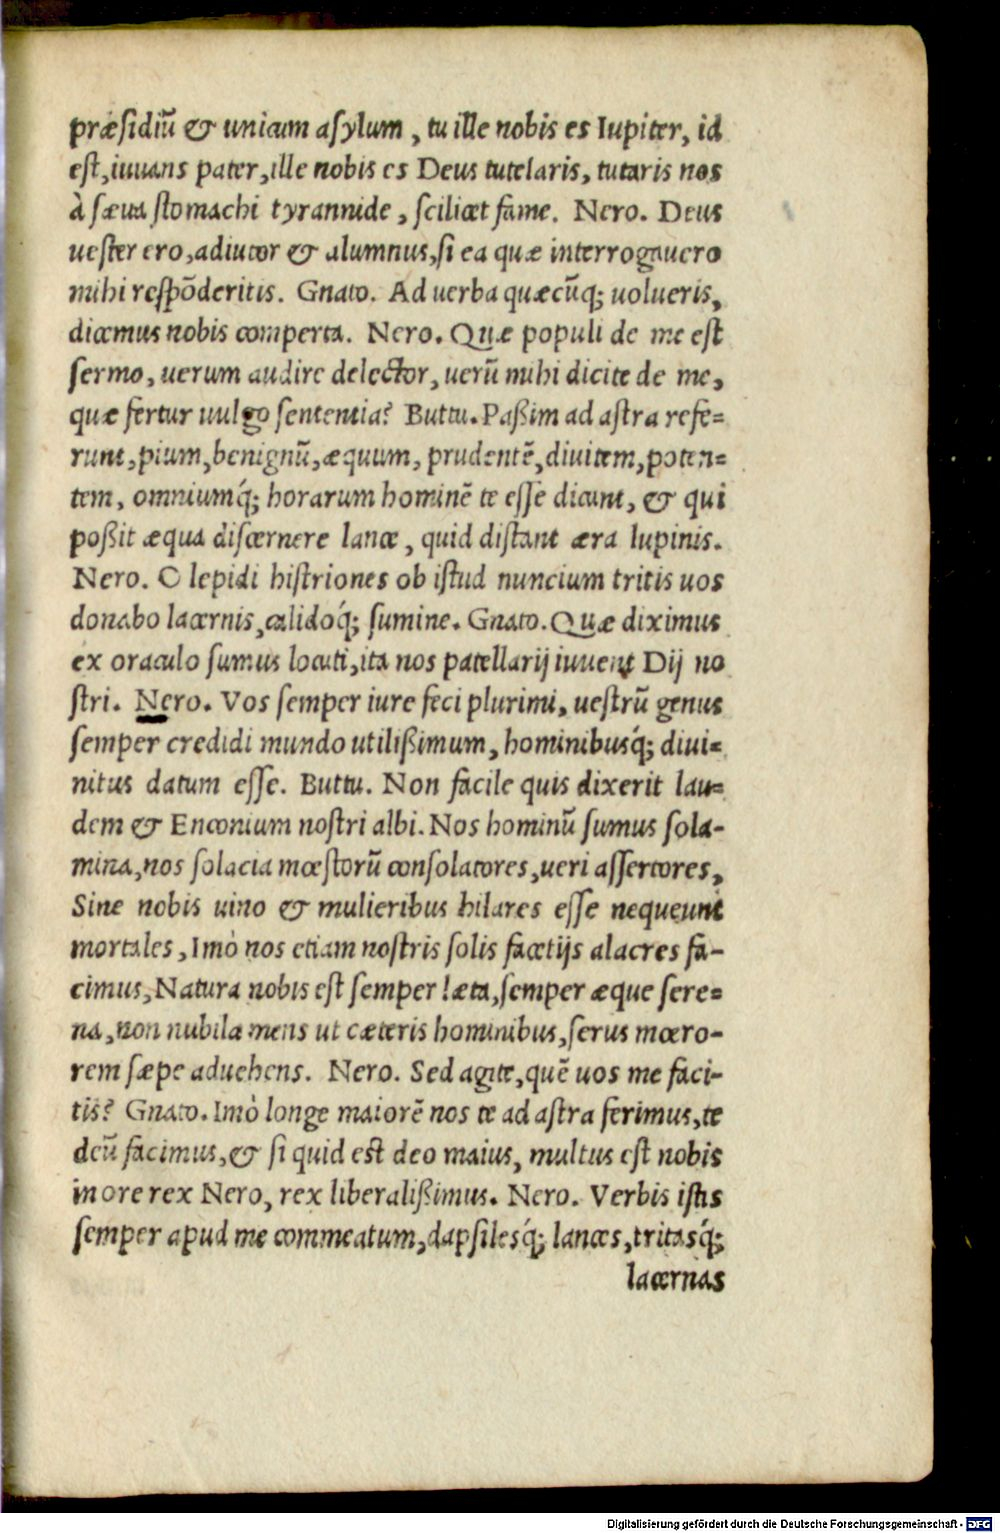 præsidiū & unicum asylum, tu ille nobis es Iupiter, id
est, iuuans pater, ille nobis es Deus tutelaris, tutaris nos
à sæua stomachi tyrannide, scilicet fame. Nero. Deus
uester ero, adiutor & alumnus, si ea quæ interrogauero
mihi respōderitis. Gnato. Ad uerba quæcūq; uolueris,
dicemus nobis comperta. Nero. Quæ populi de me est
sermo, uerum audire delector, uerū mihi dicite de me,
quæ fertur uulgo sententia? Buttu. Paßim ad astra refe=
runt, pium, benignū, æquum, prudentē, diuitem, poten=
tem, omniumq́; horarum hominē te esse dicunt, & qui
poßit æqua discernere lance, quid distant æra lupinis.
Nero. O lepidi histriones ob istud nuncium tritis uos
donabo lacernis, calidoq́; sumine. Gnato. Quæ diximus
ex oraculo sumus locuti, ita nos patellarij iuuent Dij no
stri. Nero. Vos semper iure feci plurimi, uestrū genus
semper credidi mundo utilißimum, hominibusq́; diui=
nitus datum esse. Buttu. Non facile quis dixerit lau=
dem & Enconium nostri albi. Nos hominū sumus sola-
mina, nos solacia mœstorū consolatores, ueri assertores,
Sine nobis uino & mulieribus hilares esse nequeunt
mortales, Imò nos etiam nostris solis facetijs alacres fa-
cimus, Natura nobis est semper læta, semper æque sere=
na, non nubila mens ut cæteris hominibus, serus mœro-
rem sæpe aduehens. Nero. Sed agite, quē uos me faci-
tis? Gnato. Imò longe maiorē nos te ad astra ferimus, te
deū facimus, & si quid est deo maius, multus est nobis
in ore rex Nero, rex liberalißimus. Nero. Verbis istis
semper apud me commeatum, dapsilesq́; lances, tritasq́;
lacernas
Digitalisierung gefördert durch die Deutsche Forschungsgemeinschaft - DFG